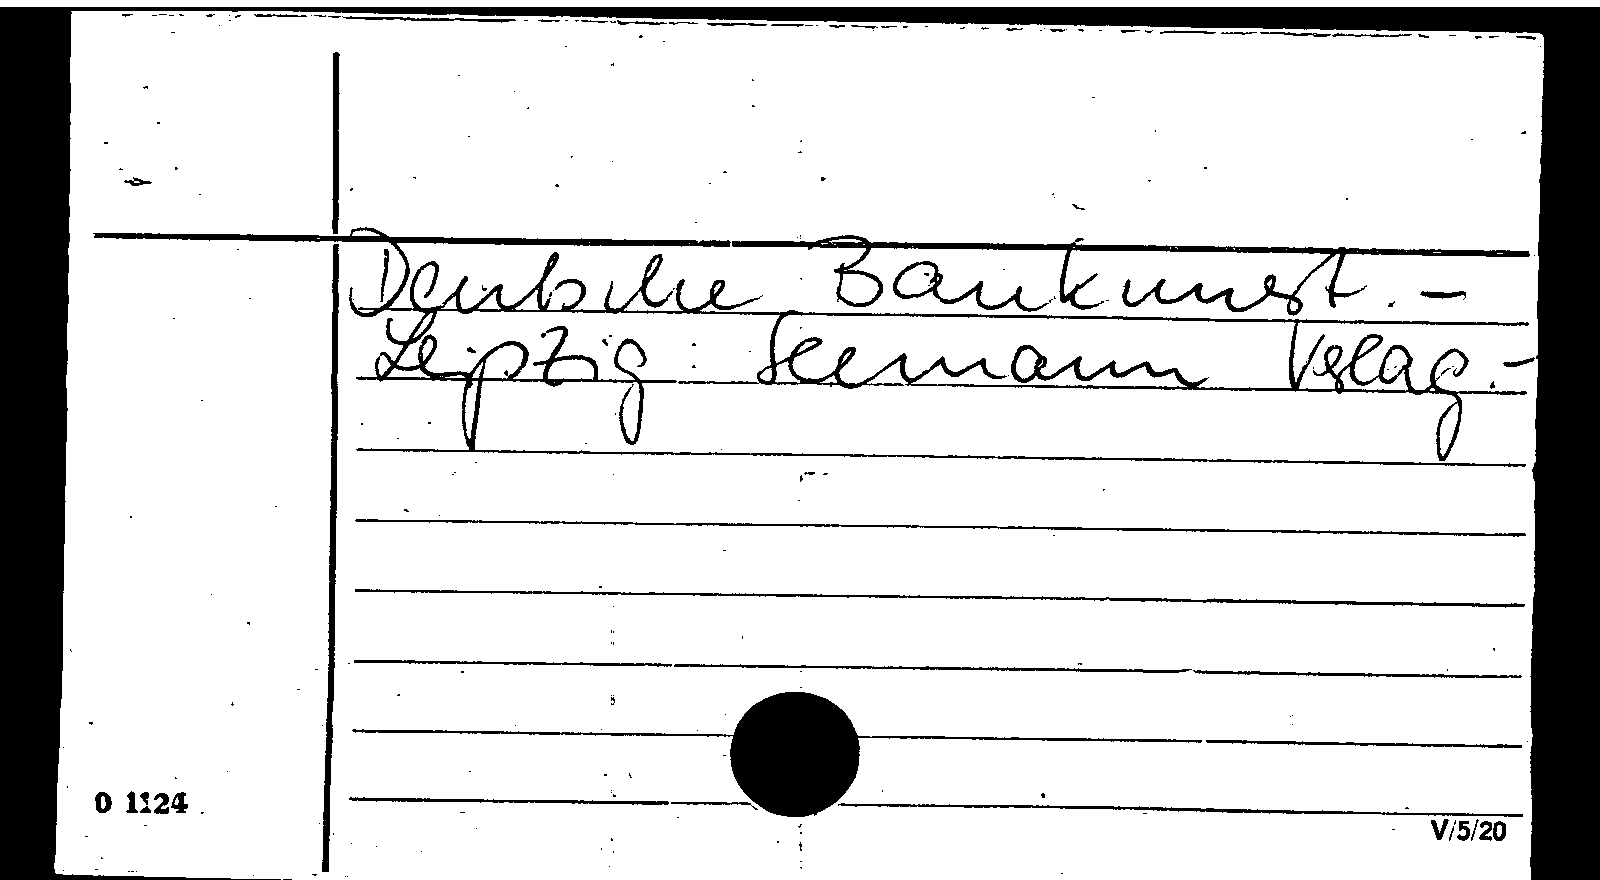 Deutsche Baukunst. -
Leipzig : Seemann Verlag. -
O 1124
V/5/20